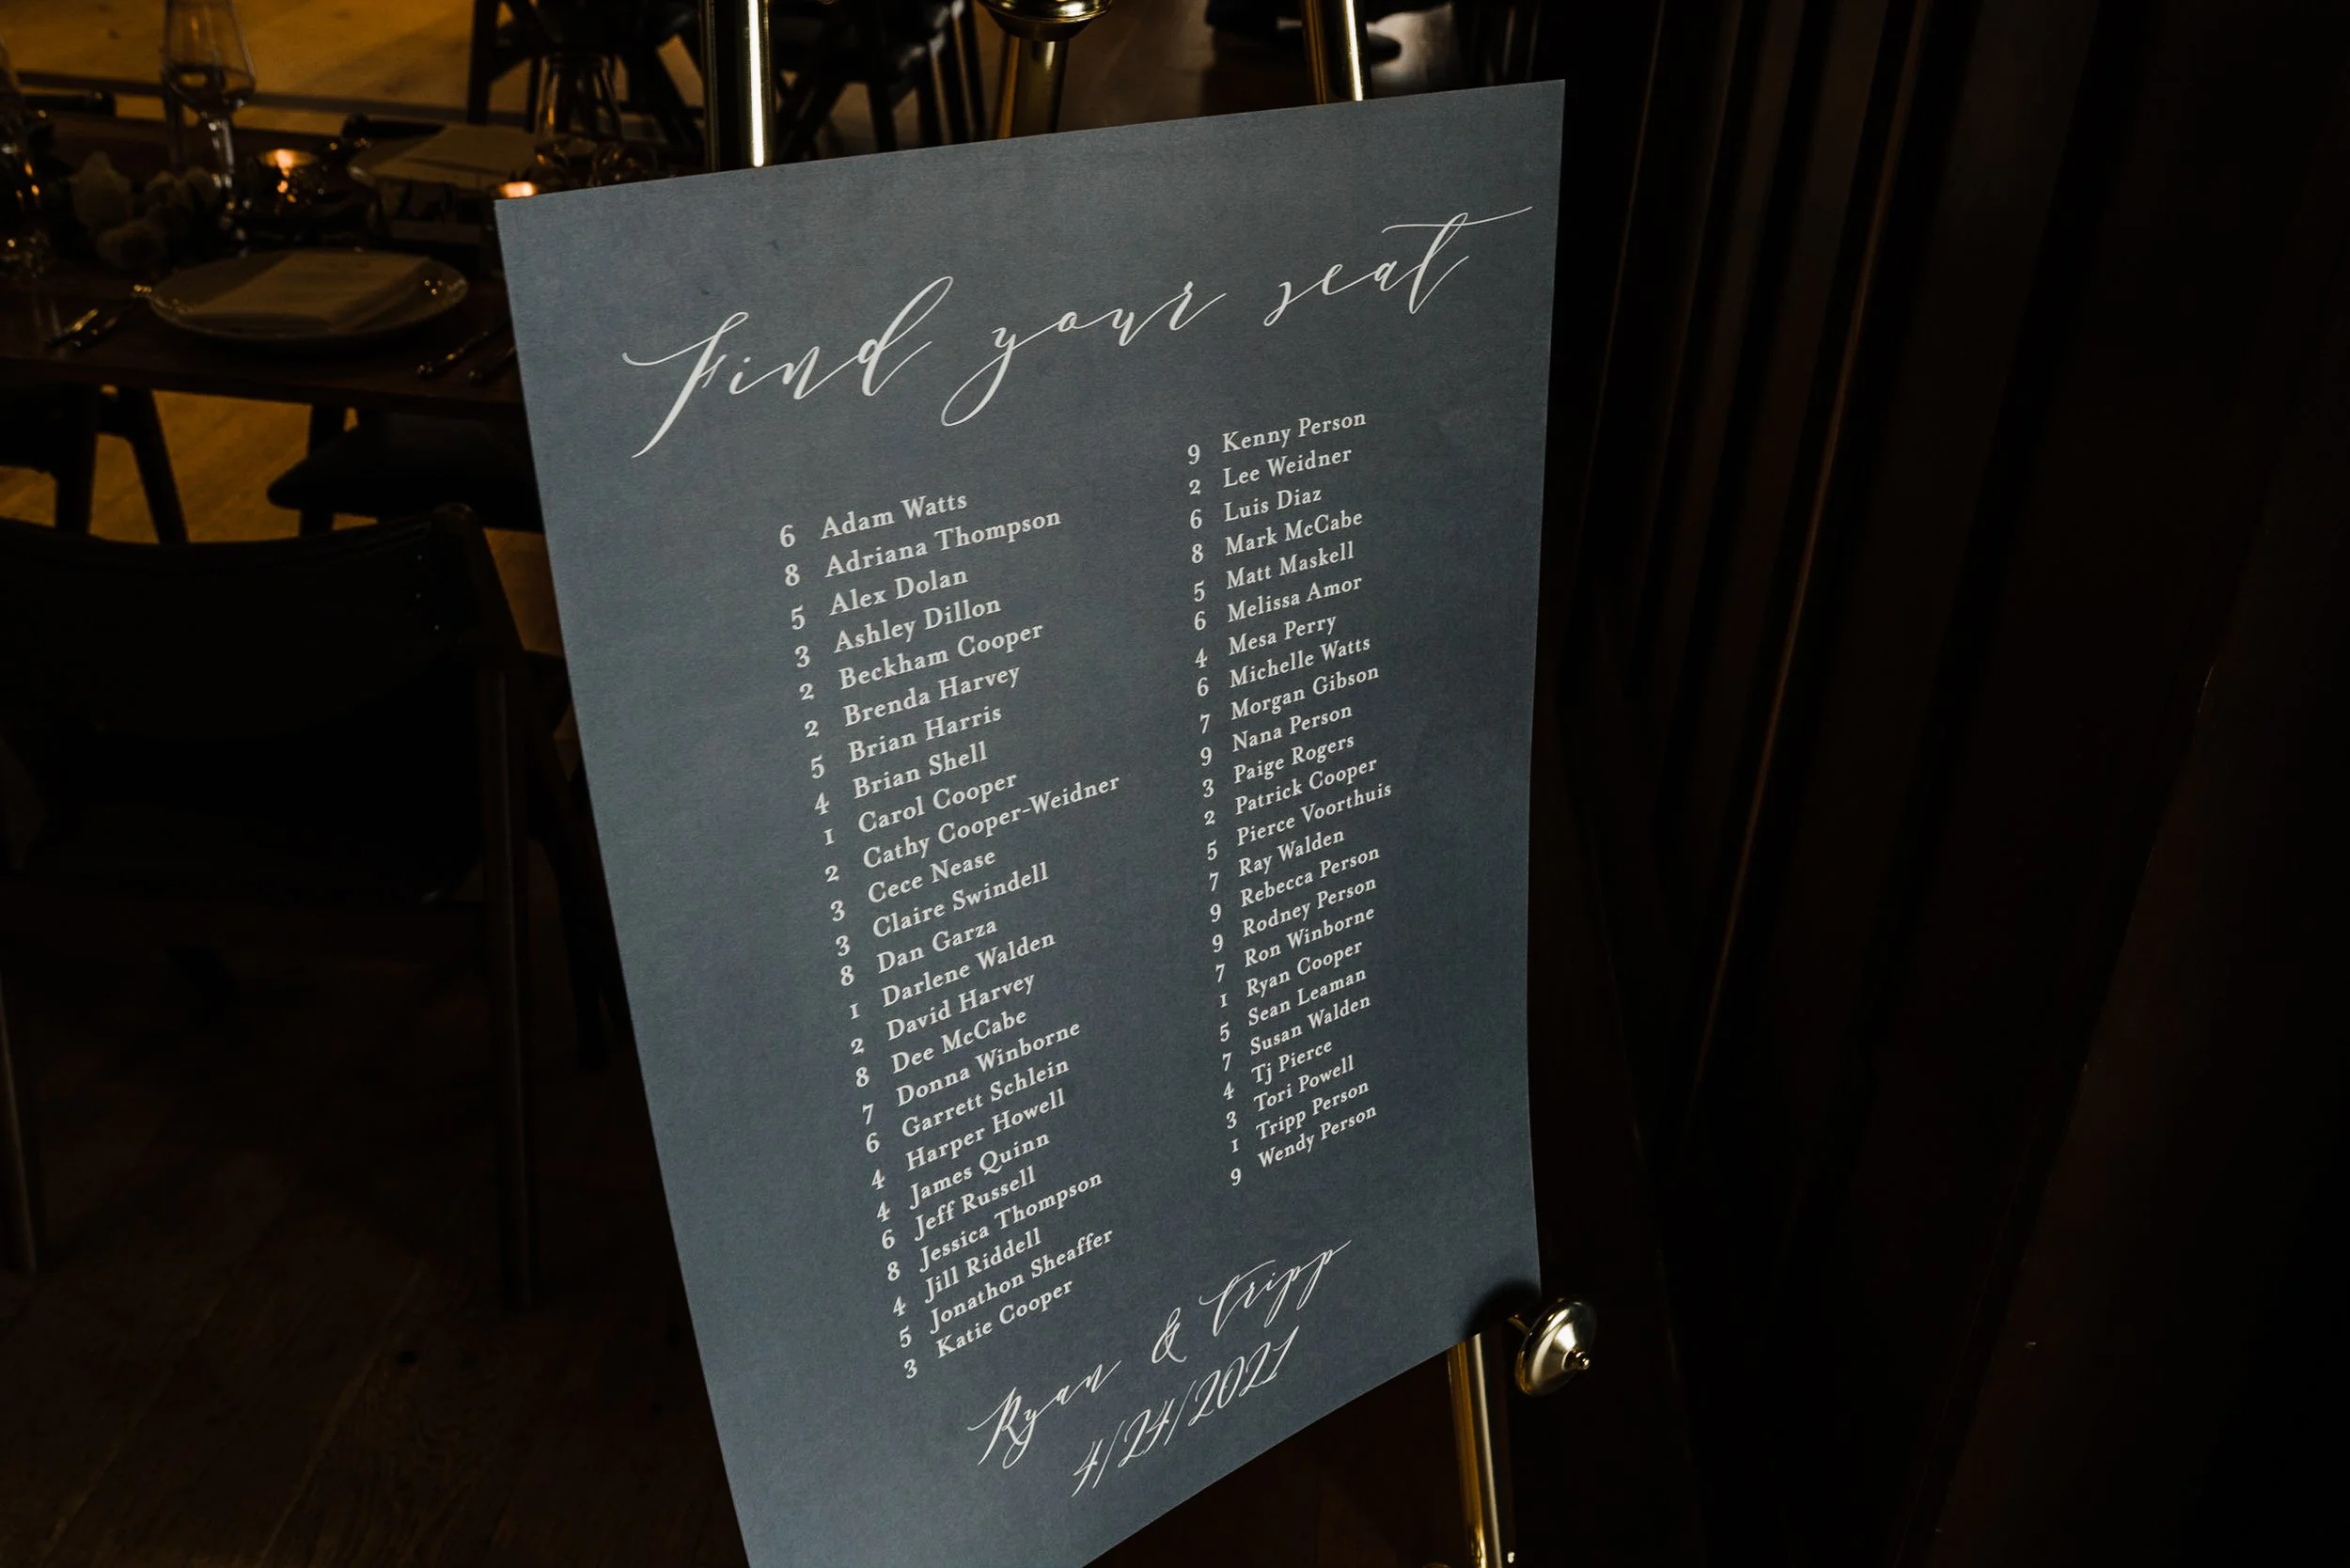 Find your seat
6 Adam Watts
8 Adriana Thompson
5 Alex Dolan
3 Ashley Dillon
2 Beckham Cooper
2 Brenda Harvey
5 Brian Harris
4 Brian Shell
1 Carol Cooper
2 Cathy Cooper-Weidner
3 Cece Nease
3 Claire Swindell
8 Dan Garza
1 Darlene Walden
2 David Harvey
8 Dee McCabe
7 Donna Winborne
6 Garrett Schlein
4 Harper Howell
4 James Quinn
6 Jeff Russell
8 Jessica Thompson
4 Jill Riddell
5 Jonathon Sheaffer
3 Katie Cooper
9 Kenny Person
2 Lee Weidner
6 Luis Diaz
8 Mark McCabe
5 Matt Maskell
6 Melissa Amor
4 Mesa Perry
6 Michelle Watts
7 Morgan Gibson
9 Nana Person
3 Paige Rogers
2 Patrick Cooper
5 Pierce Voorthuis
7 Ray Walden
9 Rebecca Person
9 Rodney Person
7 Ron Winborne
1 Ryan Cooper
5 Sean Leaman
7 Susan Walden
4 Tj Pierce
3 Tori Powell
1 Tripp Person
9 Wendy Person
Ryan & Tripp
4/24/2021